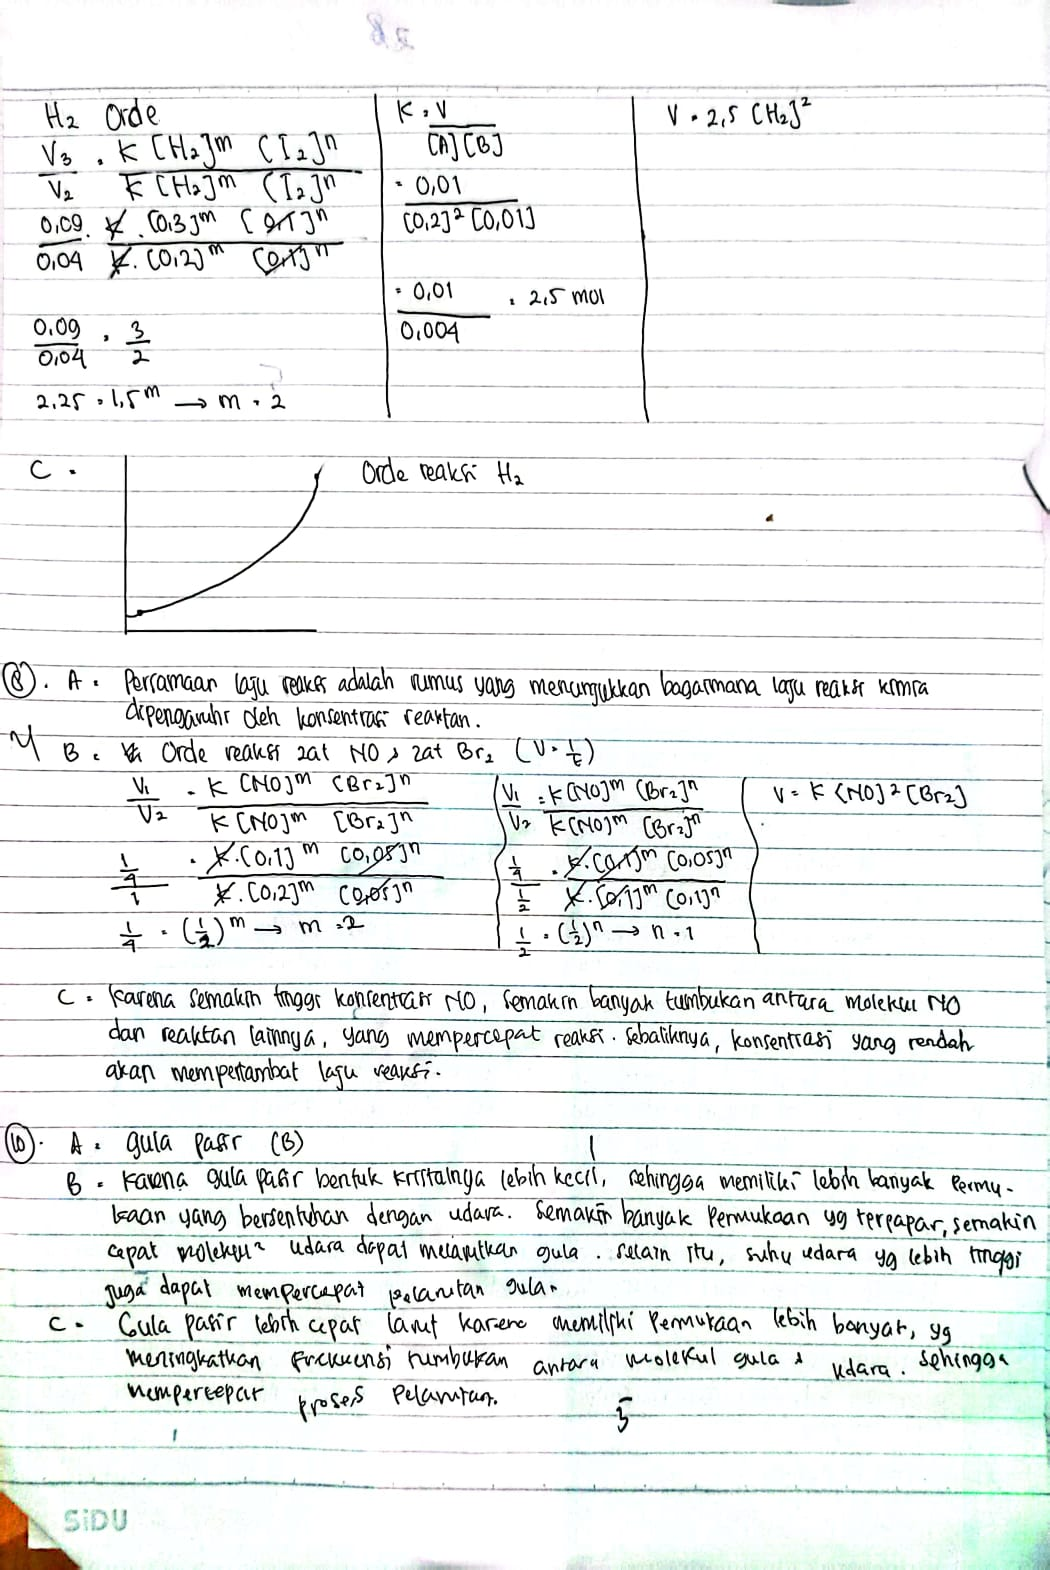 H₂ Orde
V₃ = K [H₂]m [I₂]n
V₂ K [H₂]m [I₂]n
0,09 = K. [0,3]m [0,1]n
0,04 K. [0,2]m [0,1]n
0,09 = 3
0,04 2
2,25 = 1,5m → m = 2
K = V
[A] [B]
= 0,01
[0,2]² [0,01]
= 0,01 = 2,5 mol
0,004
V = 2,5 [H₂]²
C. Orde reaksi H₂
8. A. Persamaan laju reaksi adalah rumus yang menunjukkan bagaimana laju reaksi kimia
dipengaruhi oleh konsentrasi reaktan.
B. Orde reaksi zat NO & zat Br₂ (V = 1/t)
V₁ = K [NO]m [Br₂]n
V₂ K [NO]m [Br₂]n
1/4 = K. [0,1]m [0,05]n
1 K. [0,2]m [0,05]n
1/4 = (1/2)m → m = 2
V₁ = K [NO]m [Br₂]n
V₂ K [NO]m [Br₂]n
1/4 = K. [0,1]m [0,05]n
1/2 K. [0,1]m [0,1]n
1/2 = (1/2)n → n = 1
V = K [NO]² [Br₂]
C. Karena semakin tinggi konsentrasi NO, semakin banyak tumbukan antara molekul NO
dan reaktan lainnya, yang mempercepat reaksi. Sebaliknya, konsentrasi yang rendah
akan memperlambat laju reaksi.
10. A. gula pasir (B)
B. Karena gula pasir bentuk kristalnya lebih kecil, sehingga memiliki lebih banyak permu-
kaan yang bersentuhan dengan udara. Semakin banyak permukaan yg terpapar, semakin
cepat molekul² udara dapat melarutkan gula. Selain itu, suhu udara yg lebih tinggi
juga dapat mempercepat pelarutan gula.
C. Gula pasir lebih cepat larut karena memiliki permukaan lebih banyak, yg
meningkatkan frekuensi tumbukan antara molekul gula & udara. Sehingga
mempercepat proses pelarutan.
5
SiDU